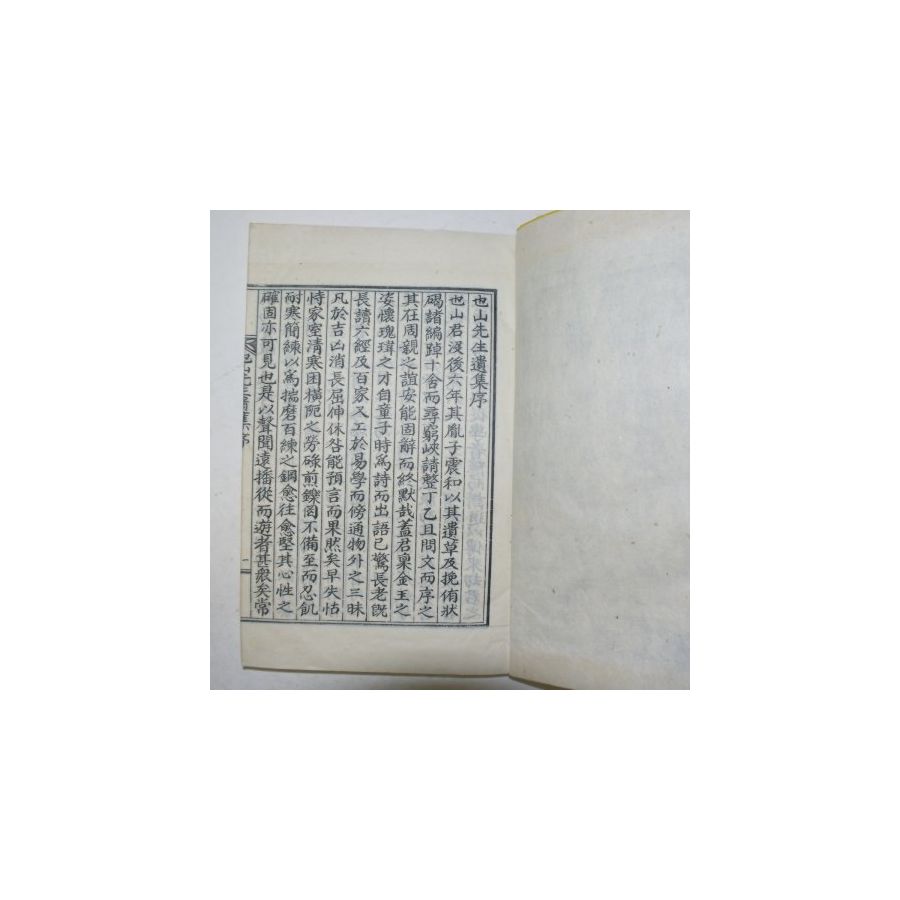 也山先生遺集序
也山君沒後六年其胤子震和以其遺草及挽侑狀
碣諸編踔十舍而尋窮峽請整丁乙且問文而序之
其在周親之誼安能固辭而終默哉蓋君稟金玉之
姿懷瑰瑋之才自童子時爲詩而出語已驚長老旣
長讀六經及百家又工於易學而傍通物外之三昧
凡於吉凶消長屈伸休咎能預言而果然矣早失怙
恃家室清寒困橫阨之勞碌煎鑠罔不備至而忍飢
耐寒簡練以爲揣磨百練之鋼愈往愈堅其心性之
確固亦可見也是以聲聞遠播從而遊者甚衆矣常
集序
一